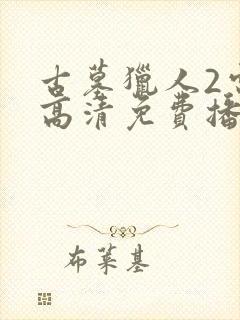 古墓獵人2
高清免費播
布萊基